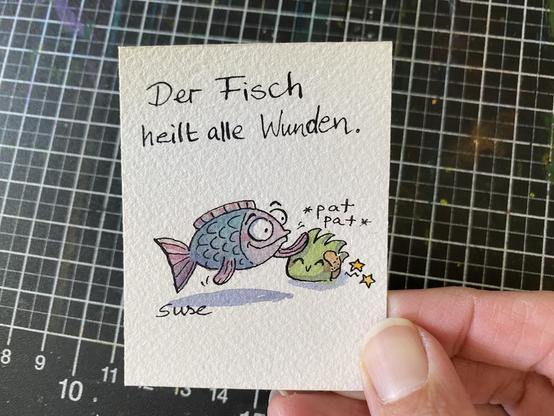 Der Fisch
heilt alle Wunden.
*pat
pat*
suse
8 9 10 11 12 13 14